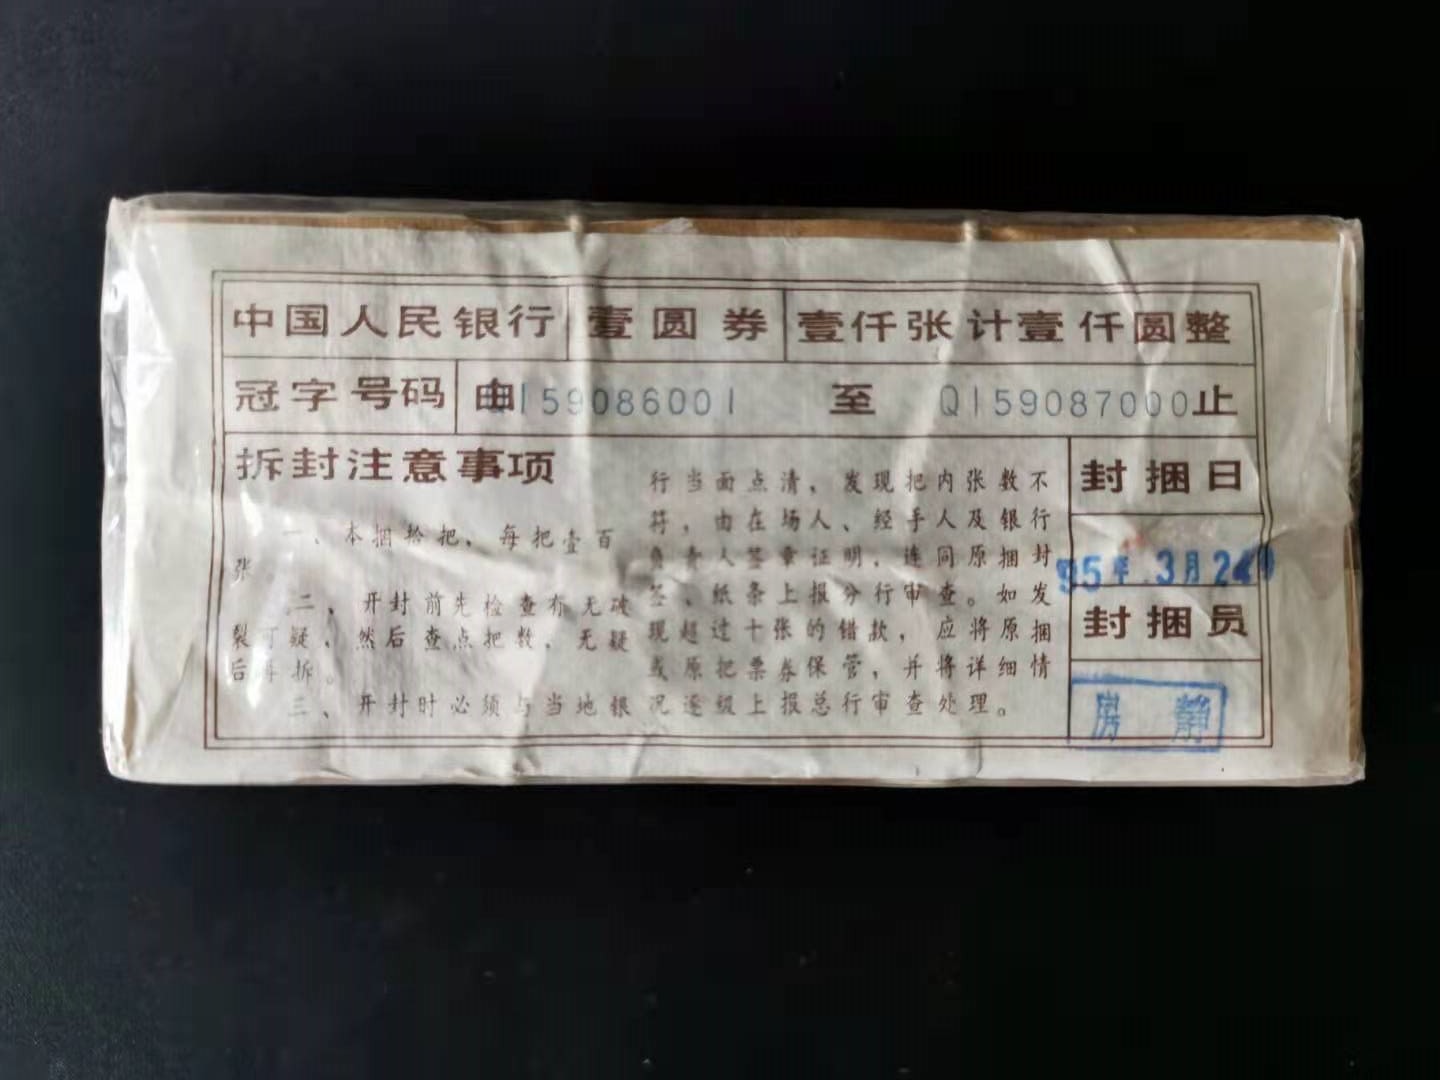 中国人民银行 壹圆券 壹仟张计壹仟圆整
冠字号码 由 159086001 至 Q159087000止
拆封注意事项
一、本捆拾把，每把壹百
张
二、开封前先检查有无破
裂可疑，然后查点把数，无疑
后再拆。
三、开封时必须与当地银
行当面点清，发现把内张数不
符，由在场人、经手人及银行
负责人签章证明，连同原捆封
签、纸条上报分行审查。如发
现超过十张的错款，应将原捆
或原把票券保管，并将详细情
况逐级上报总行审查处理。
封捆日
95年3月24日
封捆员
房静